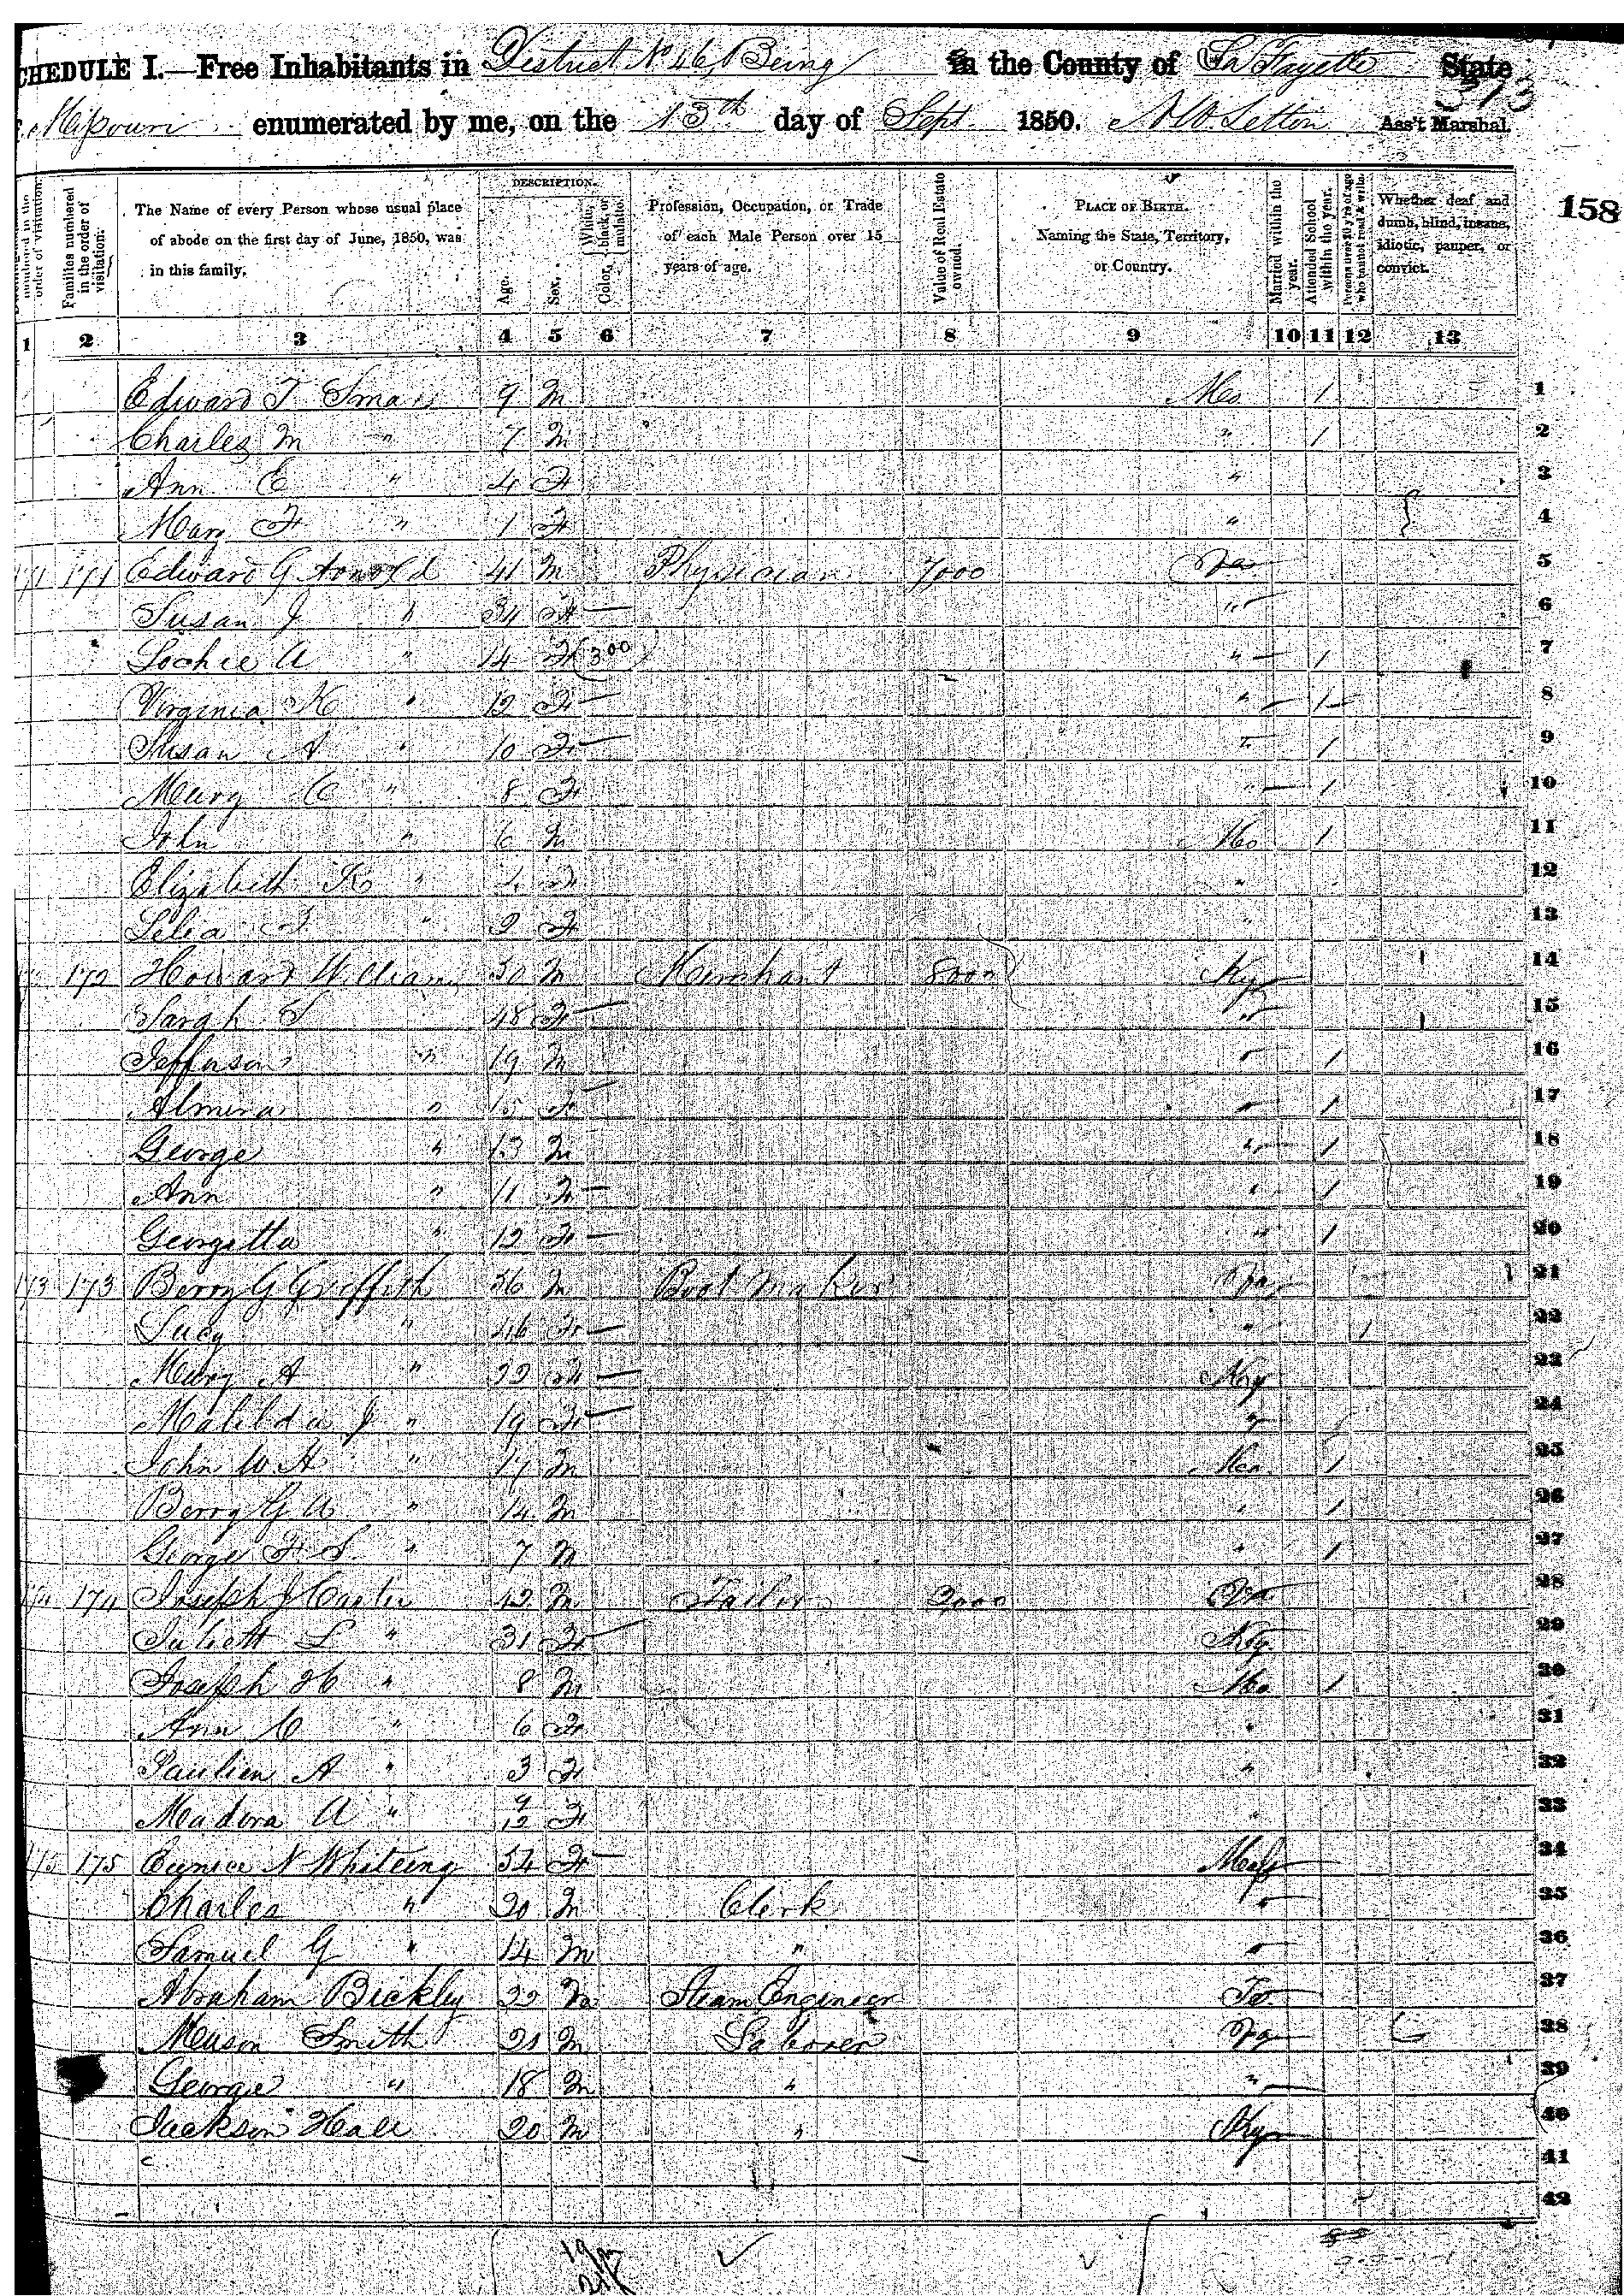 SCHEDULE I.—Free Inhabitants in District No 46, Being in the County of La Fayette State
373
of Missouri enumerated by me, on the 13th day of Sept 1850. Ass't Marshal.
158
DESCRIPTION.
numbered in the order of visitation.
Families numbered in the order of visitation.
The Name of every Person whose usual place of abode on the first day of June, 1850, was in this family.
Age.
Sex.
Color, White, black, or mulatto.
Profession, Occupation, or Trade of each Male Person over 15 years of age.
Value of Real Estate owned.
PLACE OF BIRTH. Naming the State, Territory, or Country.
Married within the year.
Attended School within the year.
Persons over 20 y'rs of age who cannot read & write.
Whether deaf and dumb, blind, insane, idiotic, pauper, or convict.
1 2 3 4 5 6 7 8 9 10 11 12 13
Edward T 9 M Mo 1 1
Charles M " 7 M " 1 2
Ann E " 4 F " 3
Mary F " 1 F " 4
171 171 Edward G Arnold 41 M Physician 7000 Va 5
Susan J " 34 F " 6
Lochie A " 14 F 300 " 1 7
Virginia K " 12 F " 1 8
Susan A " 10 F " 1 9
Mary C " 8 F " 1 10
John " 6 M Mo 1 11
Elizabeth K " F " 12
Lelia F " 2 F " 13
172 Howard Williams 50 M Merchant 8000 Ky 14
Sarah S 48 F " 15
Jefferson " 19 M " 1 16
Almira " 15 F " 1 17
George " 13 M " 1 18
Ann " 11 F " 1 19
Georgetta " 12 F " 1 20
173 173 Berry G Griffith 56 M Boot Maker Va 21
Lucy " 46 F " 1 22
Mary A " 22 F Ky 23
Malilda J " 19 F " 24
John W. A " 17 M Mo. 1 25
Berry G A " 14 M " 1 26
George F. S. " 7 M " 1 27
174 174 Joseph J Carter 42 M Tailor 2000 Va 28
Juliett L " 31 F Ky 29
Joseph H " 8 M Mo 1 30
Ann C " 6 F " 31
Paulien A " 3 F " 32
Madora A " 9/12 F " 33
175 175 Eunice N Whiteing 54 F Mass 34
Charles " 20 M Clerk " 35
Samuel G " 14 M " " 36
Abraham Bickley 22 M Steam Engineer Te 37
Meason Smith 21 M Laborer Va 38
George " 18 M " " 39
Jackson Hall 20 M " Ky 40
41
42